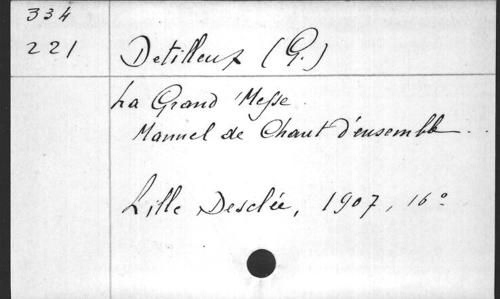 334
221
Detilleux (G.)
La Grand'Messe
Manuel de Chant d'ensemble.
Lille Desclée, 1907, 16°